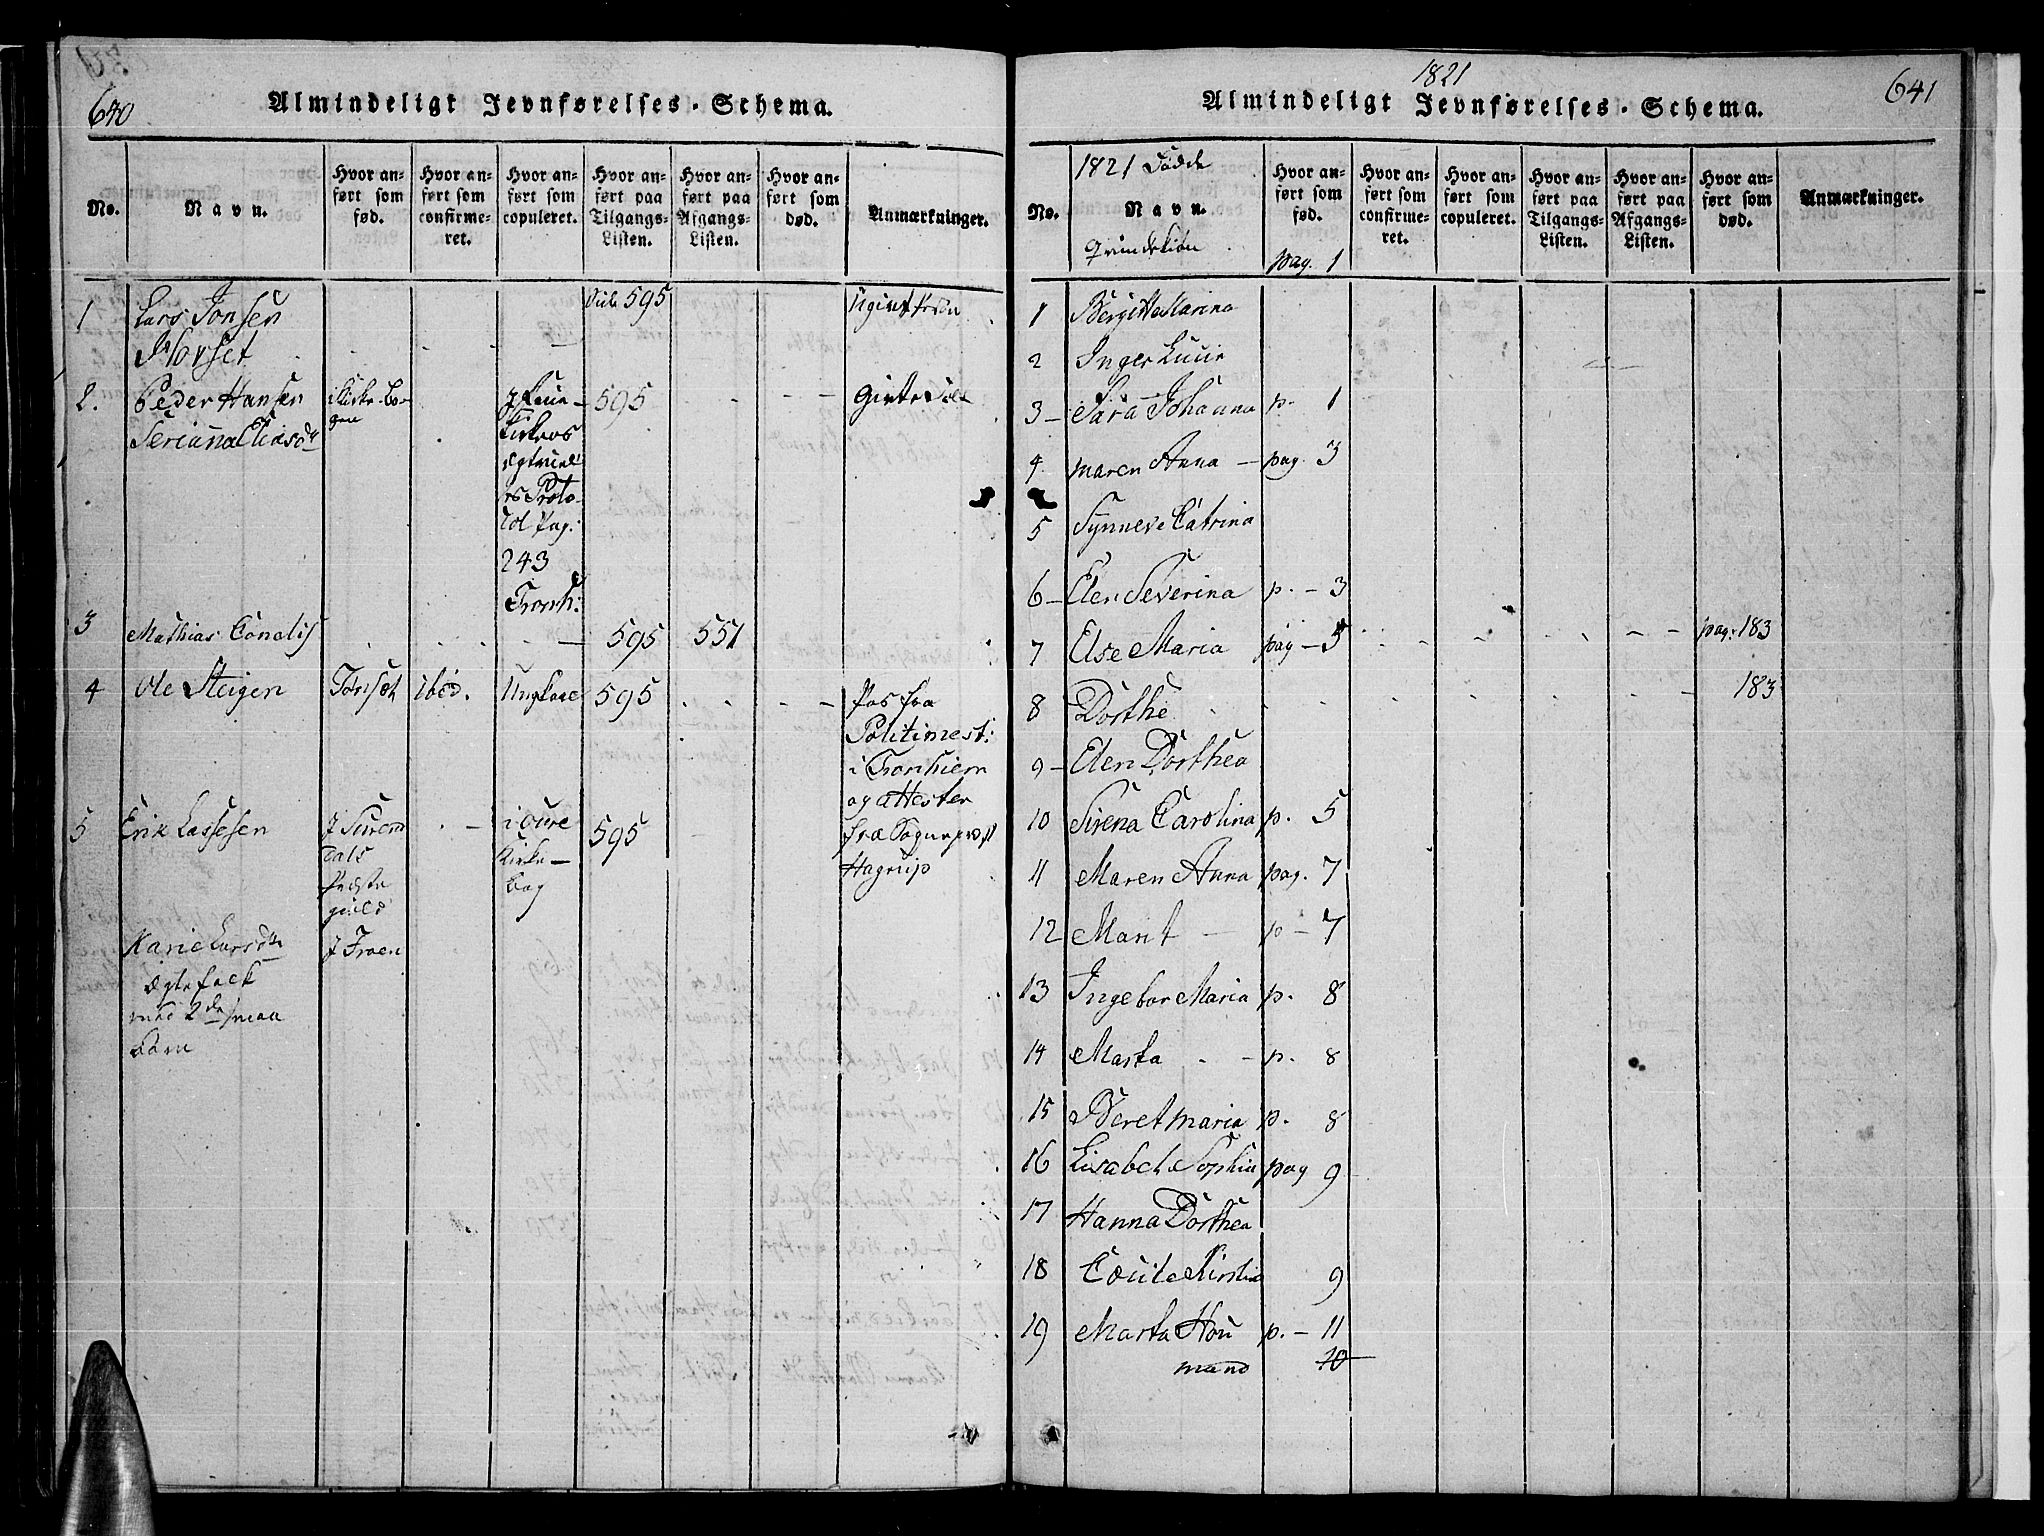 640
Almindeligt Jevnførelses-Schema.
No.
Navn.
Hvor an-
ført som
fød.
Hvor an-
ført som
confirme-
ret.
Hvor an-
ført som
copuleret.
Hvor an-
ført paa
Tilgangs-
Listen.
Hvor an-
ført paa
Afgangs-
Listen.
Hvor an-
ført som
død.
Anmærkninger.
1 Lars Jonsen 595
Morset
2. Peder Hansen 595
243
Tronh:
3 Mathias 595 551
4 Ole Steigen Tønset ibid. Ungkarl 595 Pas fra
Politimest:
i Tronhiem
og Attester
fra Sognepræst
Hagrup
5 Erik Lassesen 595
Kirke-
bog
Karie Larsdtr
Ægtefolk
med 2de smaa
Børn
1821
641
Almindeligt Jevnførelses-Schema.
No.
1821 Fødde
Navn.
Qvindekiøn
Hvor an-
ført som
fød.
pag. 1
Hvor an-
ført som
confirme-
ret.
Hvor an-
ført som
copuleret.
Hvor an-
ført paa
Tilgangs-
Listen.
Hvor an-
ført paa
Afgangs-
Listen.
Hvor an-
ført som
død.
Anmærkninger.
1 Bergitte Marina
2 Inger Lucie
3 Sara Johanna p. 1
4 Maren Anna - pag. 3
5 Synneve Catrina
6 Elen Severina p. - 3
7 Else Maria pag - 5 pag. 183
8 Dorthe 183
9 Elen Dorthea
10 Sirena Carolina p. 5
11 Maren Anna pag. 7
12 Marit - p - 7
13 Ingebor Maria p. 8
14 Marta - p. 8
15 Beret Maria p. 8
16 Lisabet Sophia pag 9
17 Hanna Dorthea
18 9
19 Marta Hou p. - 11
mand 10